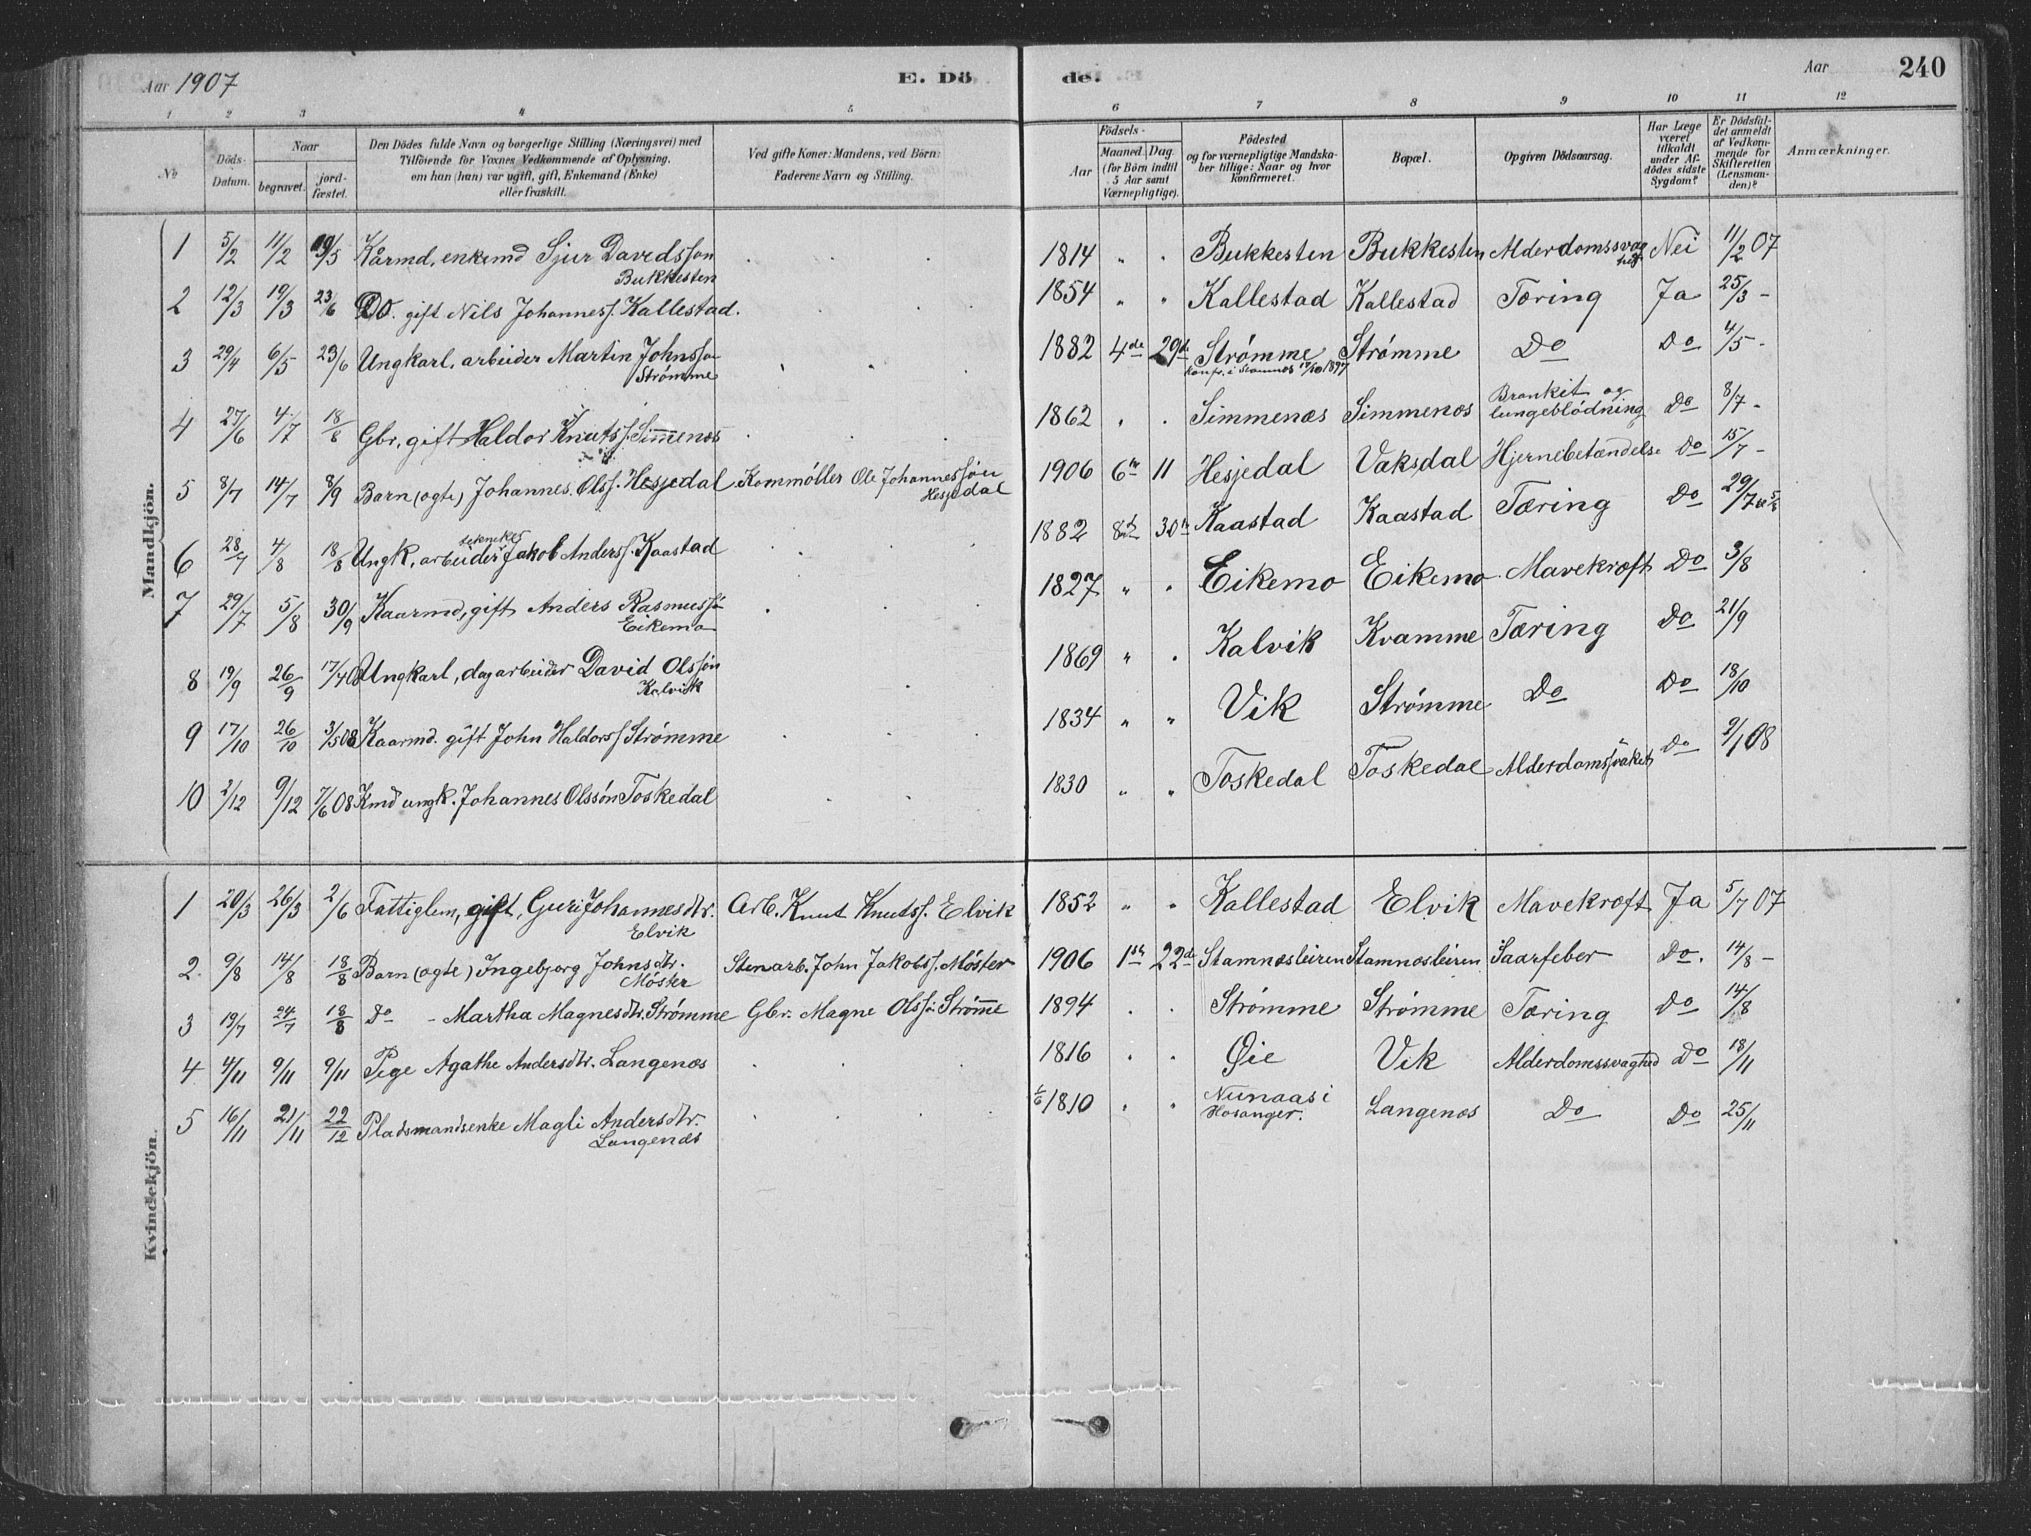 Aar 1907 E. Dö
de. Aar 240
1 2 3 4 5 6 7 8 9 10 11 12
No
Döds-Datum.
Naar
begravet.
jord-fæstet.
Den Dödes fulde Navn og borgerlige Stilling (Næringsvei) med
Tilföiende for Voxnes Vedkommende af Oplysning,
om han (hun) var ugift, gift, Enkemand (Enke)
eller fraskilt.
Ved gifte Koner: Mandens, ved Börn:
Faderens Navn og Stilling.
Födsels-
Aar
Maaned. Dag.
(for Börn indtil
5 Aar samt
Værnepligtige).
Födested
og for værnepligtige Mandska-
ber tillige: Naar og hvor
konfirmeret.
Bopæl.
Opgiven Dödsaarsag.
Har Læge
været
tilkaldt
under Af-
dödes sidste
Sygdom?
Er Dödsfal-
det anmeldt
af Vedkom-
mende for
Skifteretten
(Lensman-
den)?
Anmærkninger.
Mandkjön.
1 5/2 11/2 19/5 Kårmd, enkemd Sjur Davedsson Bukkesten 1814 " . Bukkesten Bukkesten Alderdomssvaghed Nei 11/2 07
2 12/3 19/3 23/6 Do. gift Nils Johanness. Kallestad. 1854 " " Kallestad Kallestad Tæring Ja 25/3 -
3 29/4 6/5 23/6 Ungkarl, arbeider Martin Johnsso Strømme 1882 4de 29de Strømme konfr. i Stamnes 17/10 1897 Strømme Do Do 4/5 -
4 27/6 4/7 18/8 Gbr, gift Haldor Knutss. Simmenæs 1862 . . Simmenæs Simmenæs Bronkit og lungeblødning Do 8/7 -
5 8/7 14/7 8/9 Barn (ægte) Johannes Olss. Hesjedal Kornmøller Ole Johannessøn Hesjedal 1906 6te 11 Hesjedal Vaksdal Hjernebetændelse Do 15/7 -
6 28/7 4/8 18/8 Ungk, arbeider Jakob Anderss. Kaastad 1882 8de 30te Kaastad Kaastad Tæring Do 29/7
7 29/7 5/8 30/9 Kaarmd, gift Anders Rasmussø Eikemo 1827 " . Eikemo Eikemo Mavekræft Do 3/8
8 19/9 26/9 Ungkarl, dagarbeider David Olssøn Kalvik 1869 " . Kalvik Kvamme Tæring Do 21/9
9 17/10 26/10 3/5 08 Kaarmd. gift John Haldorss Strømme 1834 " " Vik Strømme Do Do 18/10
10 2/12 9/12 7/6 08 Kmd ungk. Johannes Olssøn Toskedal 1830 " " Toskedal Toskedal Alderdomssvakhet Do 2/1 08
Kvindekjön.
1 20/3 26/3 2/6 Fattiglem, gift, Guri Johannesdtr. Elvik Arb. Knut Knutss. Elvik 1852 " " Kallestad Elvik Mavekræft Ja 5/7 07
2. 9/8 14/8 18/8 Barn (ægte) Ingebjorg Johnsdtr. Møster Stenarb. John Jakobss. Møster 1906 1ste 22de Stamnæsleiren Stamnæsleiren Saarfeber Do. 14/8 -
3 19/7 24/7 18/8 Do - Martha Magnesdtr. Strømme Gbr. Magne Olssø Strømme 1894 . . Strømme Strømme Tæring Do 14/8
4 4/11 9/11 9/11 Pige Agathe Andersdtr. Langenæs 1816 . . Øie Vik Alderdomssvaghed Do 18/11
5 16/11 21/11 22/12 Pladsmandsenke Magli Andersdtr. Langenæs 1/6 1810 " " Nunaas i Hosanger. Langenæs Do Do 25/11